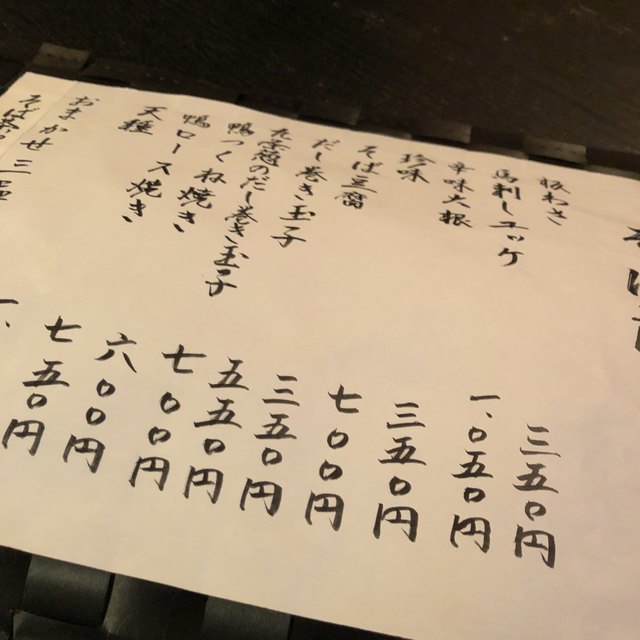 板わさ 三五〇円
馬刺しユッケ 一、〇五〇円
辛味大根 三五〇円
珍味 七〇〇円
そば豆腐 三五〇円
だし巻き玉子 五五〇円
九条葱のだし巻き玉子 七〇〇円
鴨つくね焼き 六〇〇円
鴨ロース焼き 七五〇円
天種 一、
おまかせ三